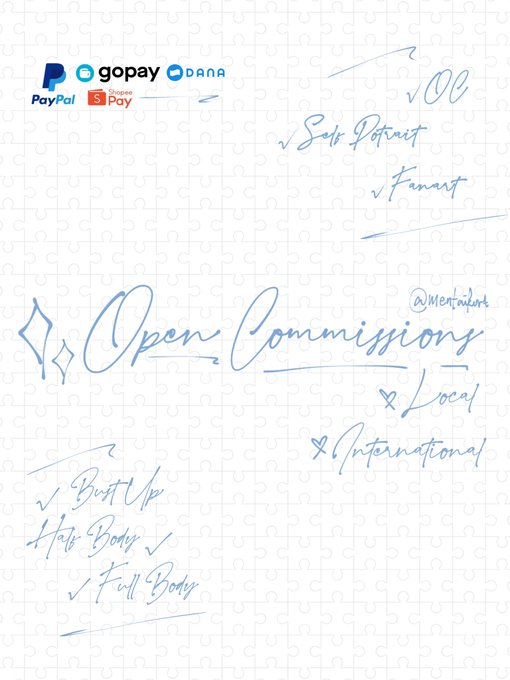 PayPal
gopay
DANA
S Shopee Pay
OC
Self Potrait
Fanart
Open Commissions
Local
International
Bust Up
Half Body
Full Body